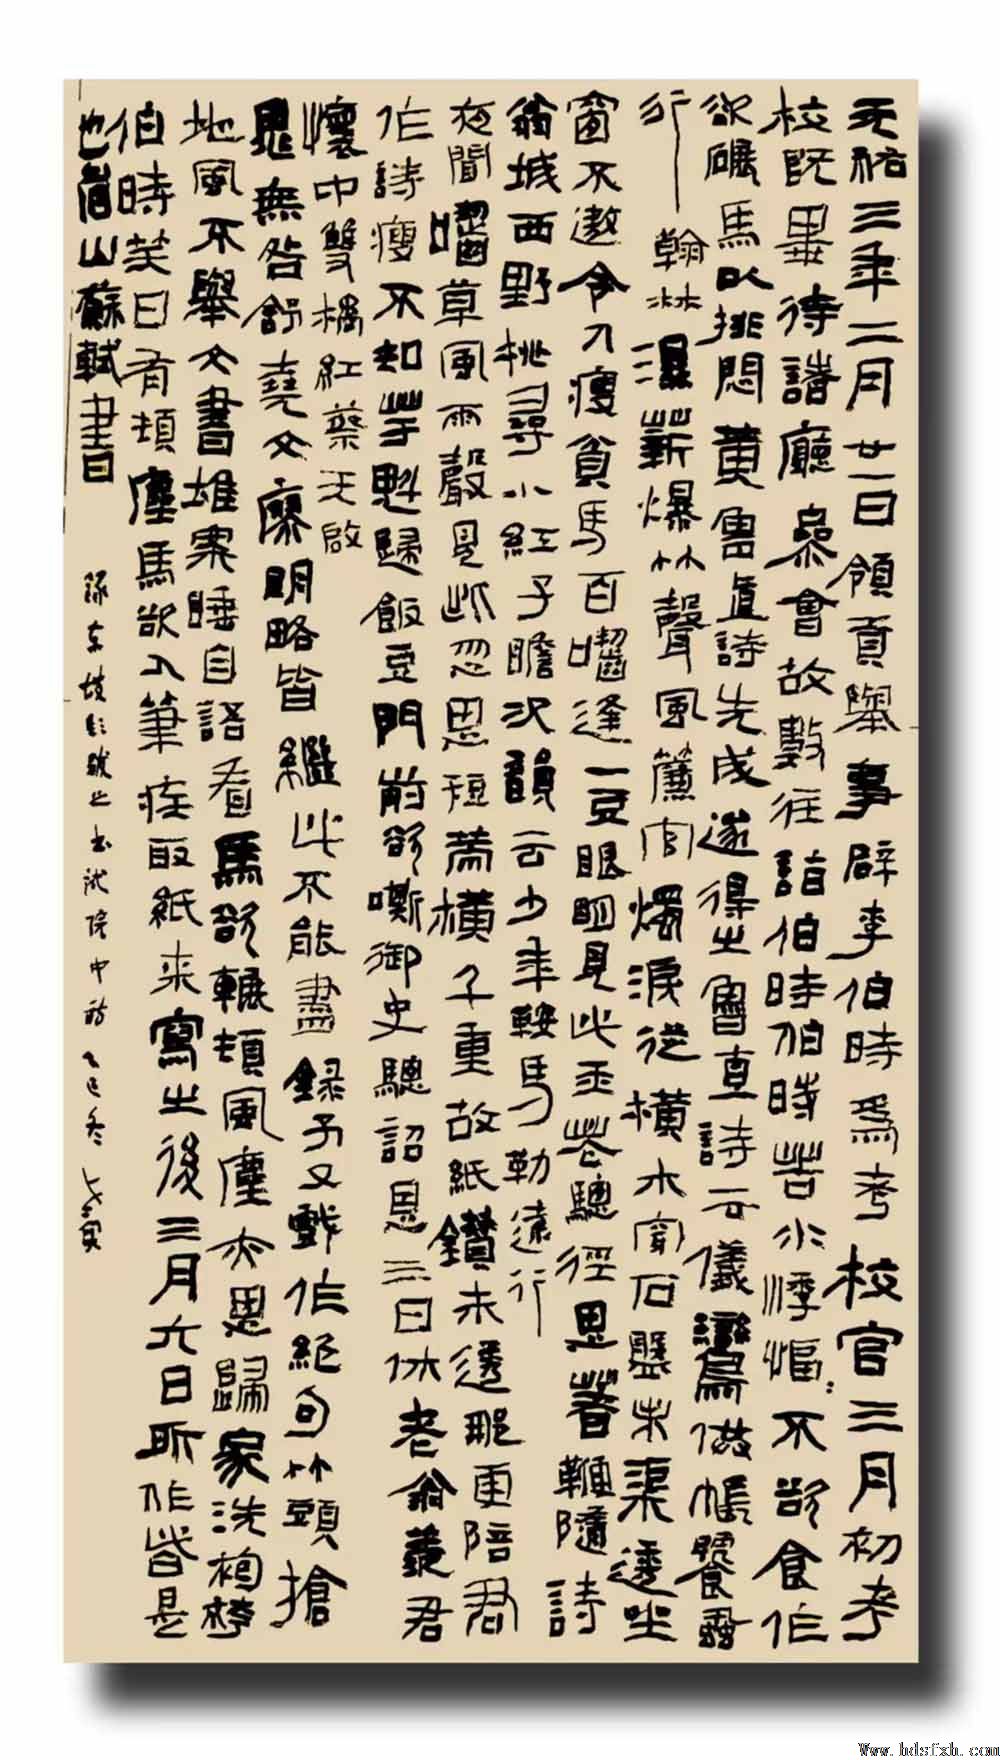 元祐三年二月廿一日領貢舉事辟李伯時為考校官三月初考
校既畢待諸廳參會故數往詣伯時伯時苦水悸愊愊不欲食作
欲𩥇馬以排悶黃魯直詩先成遂得之魯直詩云儀鸞供帳饕蝨
行翰林濕薪爆竹聲風簾官燭淚縱橫木穿石盤未渠透坐
窗不遨令人瘦貧馬百𫜬逢一豆眼明見此玉花驄徑思著鞭隨詩
翁城西野桃尋小紅子瞻次韻云少年鞍馬勤遠行
夜聞𫜬草風雨聲見此忽思短策橫十重故紙鑽未透那更陪君
作詩瘦不如芋魁歸飯豆門前欲嘶御史驄詔恩三日休老翁羨君
懷中雙橘紅蔡天啟
晁無咎舒堯文廖明略皆繼此不能盡錄予又戲作絕句竹頭搶
地風不舉文書堆案睡自語看馬欲𩥇頓風塵亦思歸家洗袍袴
伯時笑曰有頓塵馬欲入筆疾取紙來寫之後三月六日所作皆是
也眉山蘇軾書曰
錄東坡題跋之書試院中詩
Www.hdsfxh.com